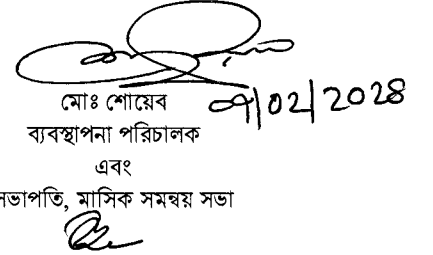 মোঃ শোয়েব
০৭/০২/২০২৪
ব্যবস্থাপনা পরিচালক
এবং
সভাপতি, মাসিক সমন্বয় সভা